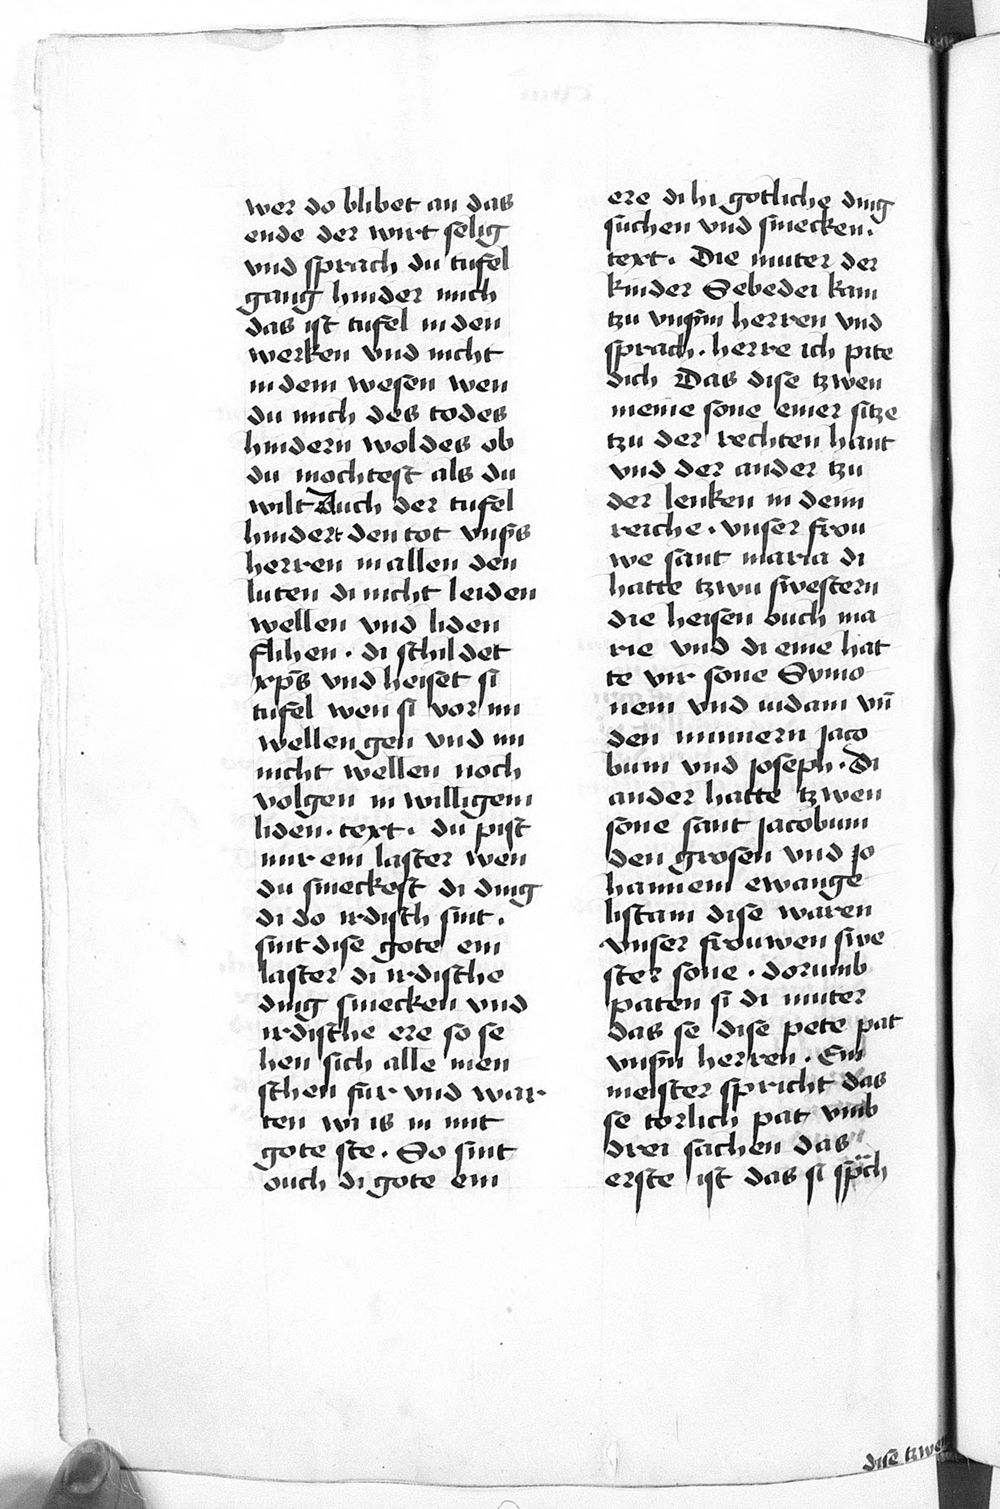 wer do blibet an das
ende der wirt selig
vnd sprach du tufel
gang hinder mich
das ist tufel in den
werken vnd nicht
in dem wesen wen
du mich des todes
hindern woldes ob
du mochtest als du
wilt Auch der tufel
hindert den tot vnsˢs
herren in allen den
luten di nicht leiden
wellen vnd liden
flihen . di schildet
xp̄s vnd heiset si
tufel wen si vor im
wellen gen vnd im
nicht wellen noch
volgen in willigem
liden . text . du pist
mir ein laster wen
du smeckest di ding
di do irdisch sint .
sint dise gote ein
laster di irdische
ding smecken vnd
irdische ere so se
hen sich alle men
schen fur vnd war
ten wi is in mit
gote ste . So sint
ouch di gote ein
ere di hi gotliche ding
suchen vnd smecken .
text . Die muter der
kinder Sebedei kam
tzu vnsˢm herren vnd
sprach . herre ich pite
dich Das dise tzwen
meine sone einer sitze
tzu der rechten hant
vnd der ander tzu
der lenken in deim
reiche . vnser frou
we sant maria di
hatte tzwu swestern
die heisen ouch ma
rie vnd di eine hat
te vir sone Symo
nem vnd iudam vn̄
den minnern Jaco
bum vnd joseph . Di
ander hatte tzwen
sone sant jacobum
den grosen vnd jo
hannem ewange
listam dise waren
vnser frouwen swe
ster sone . dorumb
paten si di muter
das se dise pete pat
vnsˢn herren . Ein
meister spricht das
se torlich pat vmb
drei sachen das
erste ist das si sp̄ch
dise tzwen